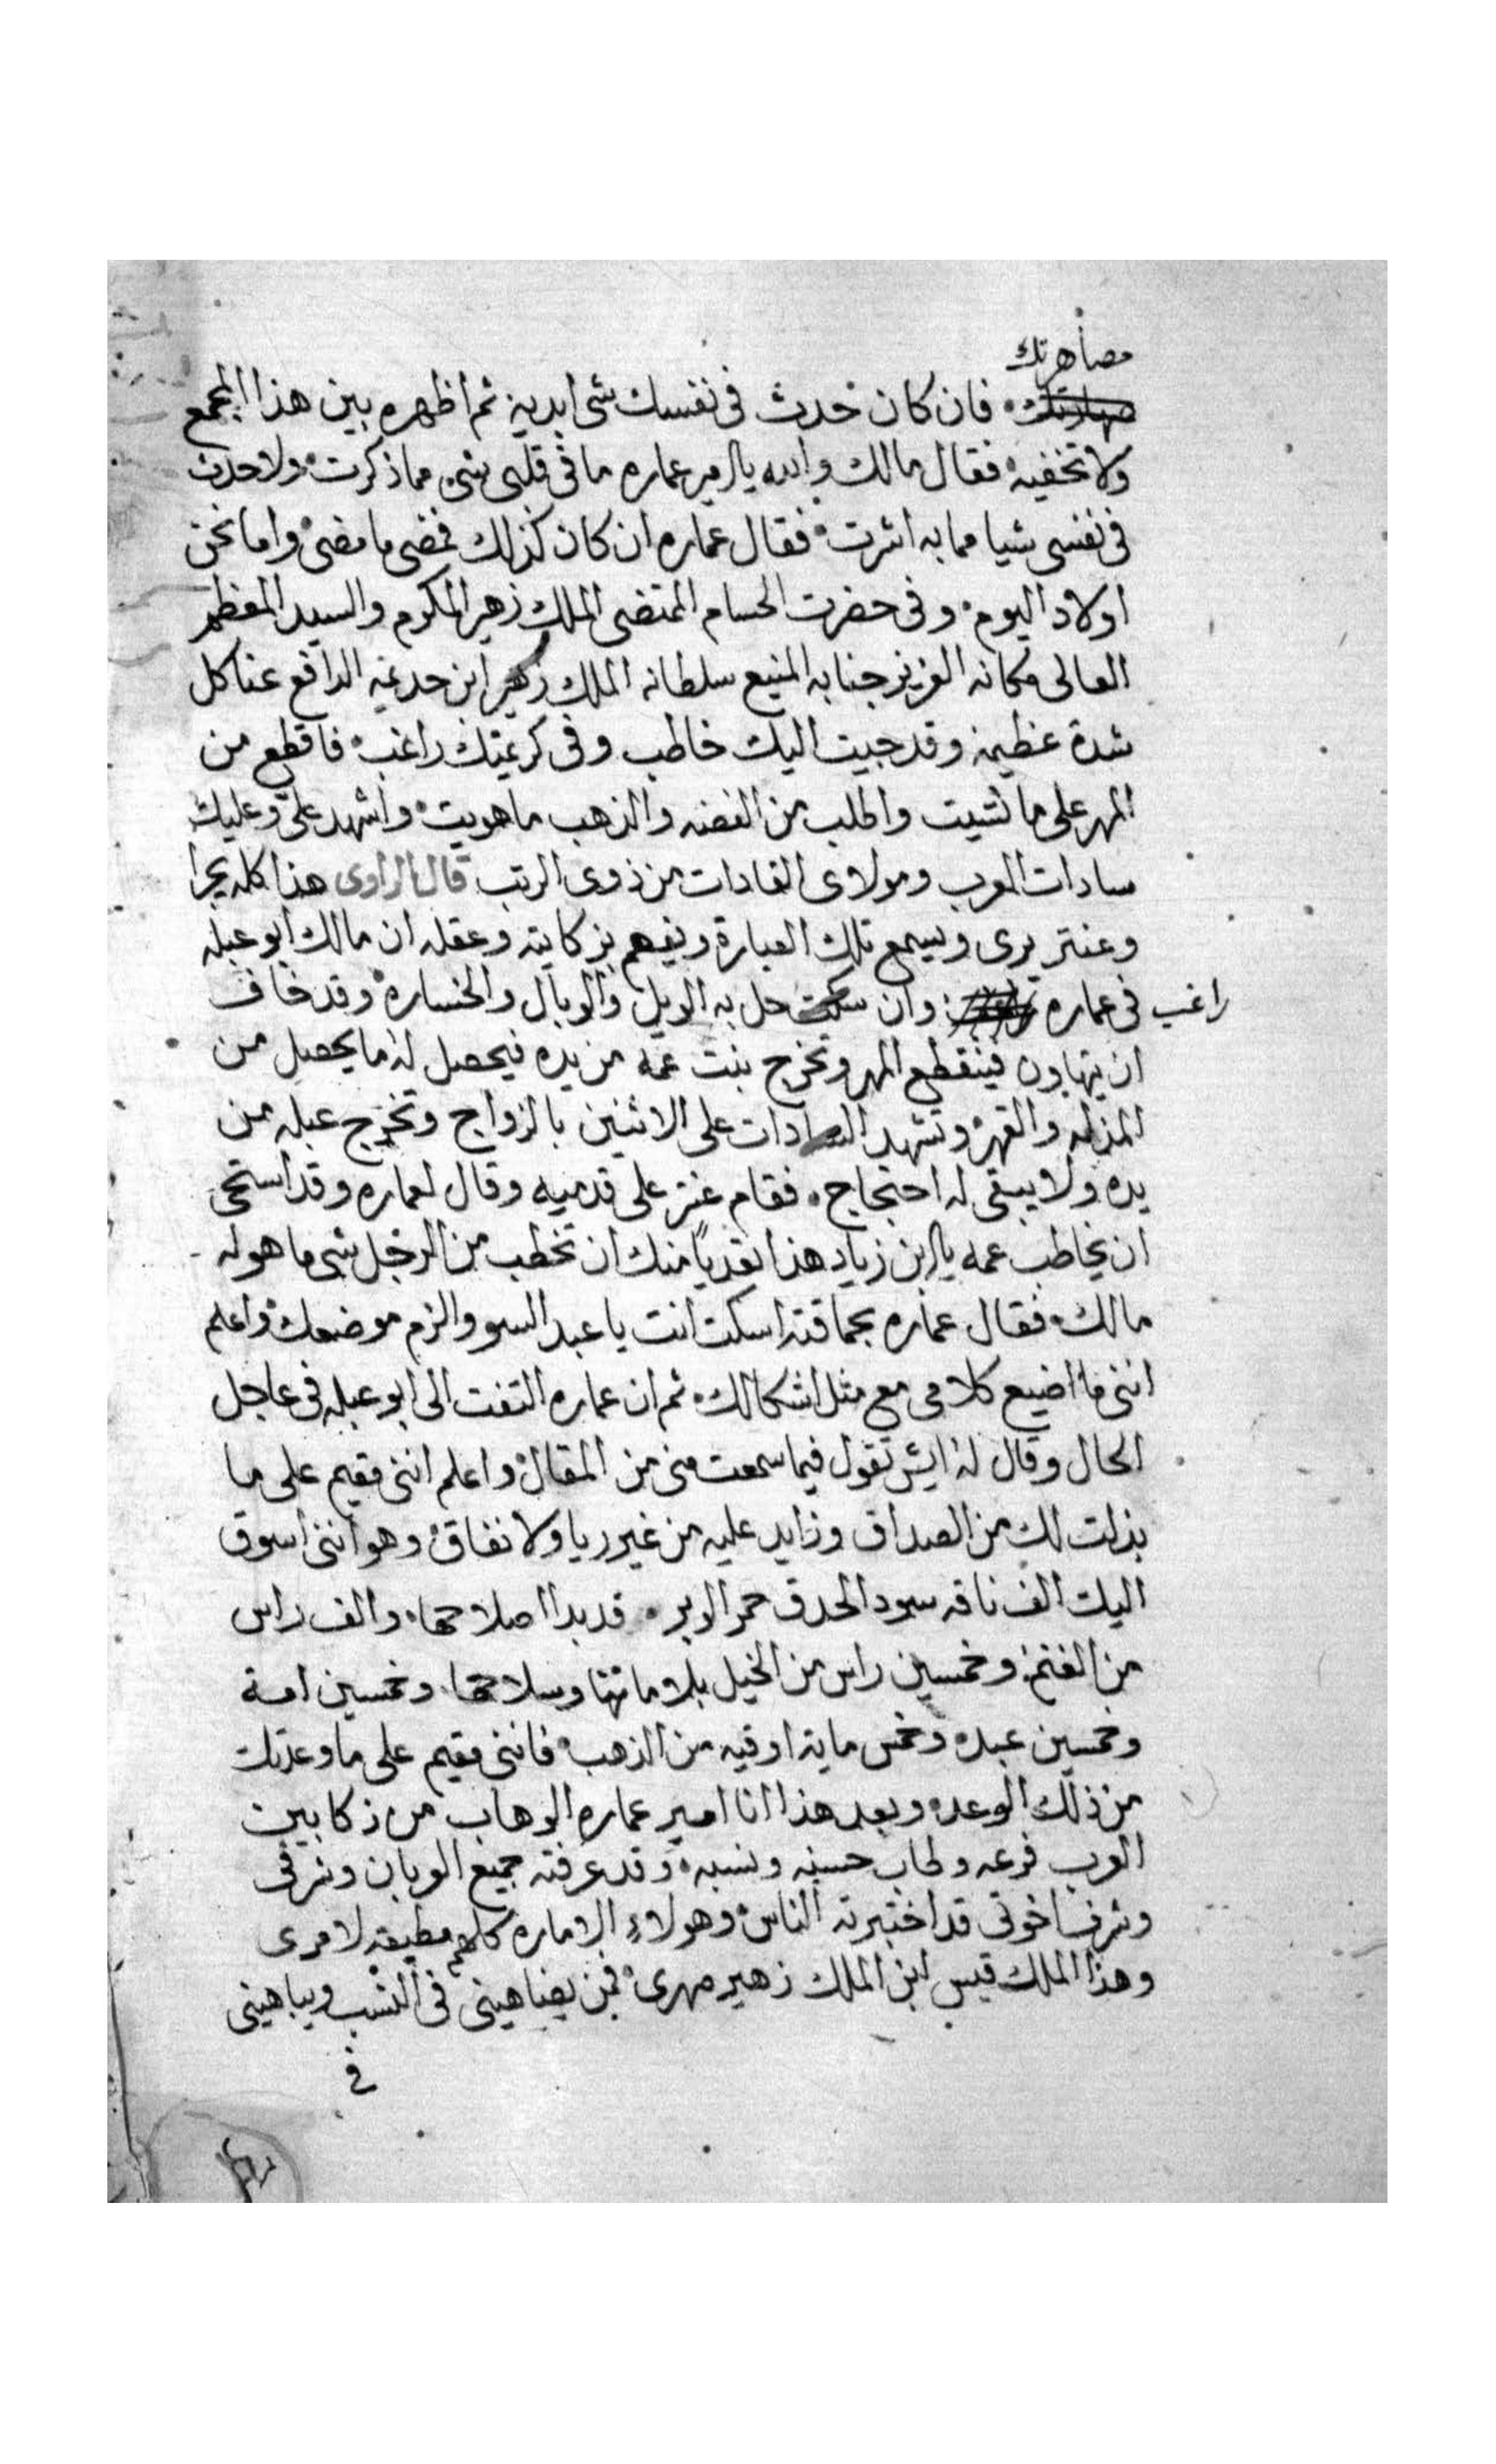 مصاهرتك
فان كان حدث فى نفسك شى ابديه ثم اظهره بين هذا المجمع
ولا تخفيه فقال مالك والله يالامير عماره ما فى قلبى شى مما ذكرت ولا حدث
فى نفسى شيا مما به اشرت فقال عماره ان كان كذلك فمضى ما مضى واما نحن
اولاد اليوم وفى حضرت الحسام المتضى الملك زهير المكرم والسيد المعظم
العالى مكانه العزيز جنابه المنيع سلطانه الملك زهير ابن جديمه الدافع عنا كل
شدة عظيمه وقد جيت اليك خاطب وفى كريمتك راغب فاقطع من
المهر على ما شيت واطلب من الفضه والذهب ما هويت واشهد علىّ وعليك
سادات العرب ومولاى القادات من ذوى الرتب قال الراوى هذا كله يجرا
وعنتر يرى ويسمع تلك العبارة ويفهم بزكايته وعقله ان مالك ابو عبله
راغب فى عماره وان سكت حل به الويل والوبال والخساره وقد خاف
ان يتهاون فينقطع المهر وتخرج بنت عمه من يده فيحصل له ما يحصل من
المذله والقهر وتشهد السادات على الاثنين بالزواج وتخرج عبله من
يده ولا يبقى له احتجاج فقام عنتر على قدميه وقال لعماره وقد استحى
ان يخاطب عمه يالابن زياد هذا تعدياً منك ان تخطب من الرجل شى ما هو له
مالك فقال عماره بحماقته اسكت انت يا عبد السو والزم موضعك واعلم
اننى ما اضيع كلامى مع مثل اشكالك ثم ان عماره التفت الى ابو عبله فى عاجل
الحال وقال له ايش تقول فيما سمعت منى من المقال واعلم اننى مقيم على ما
بذلت لك من الصداق وزايد عليه من غير ريا ولا نفاق وهو اننى اسوق
اليك الف ناقه سود الحدق حمر الوبر قد بدا اصلاحها والف راس
من الغنم وخمسين راس من الخيل بلاماتها وسلاحها وخمسين امة
وخمسين عبد وخمس ماية اوقيه من الذهب فاننى مقيم على ما وعدتك
من ذلك الوعد وبعد هذا انا امير عماره الوهاب من زكا بين
العرب فرعه وطاب حسبه ونسبه وقد عرفته جميع العربان وشرفى
وشرف اخوتى قد اختبرته الناس وهولاء الاماره كلهم مطيعه لامرى
وهذا الملك قيس ابن الملك زهير صهرى فمن يضاهينى فى النسب ويباهينى
فى